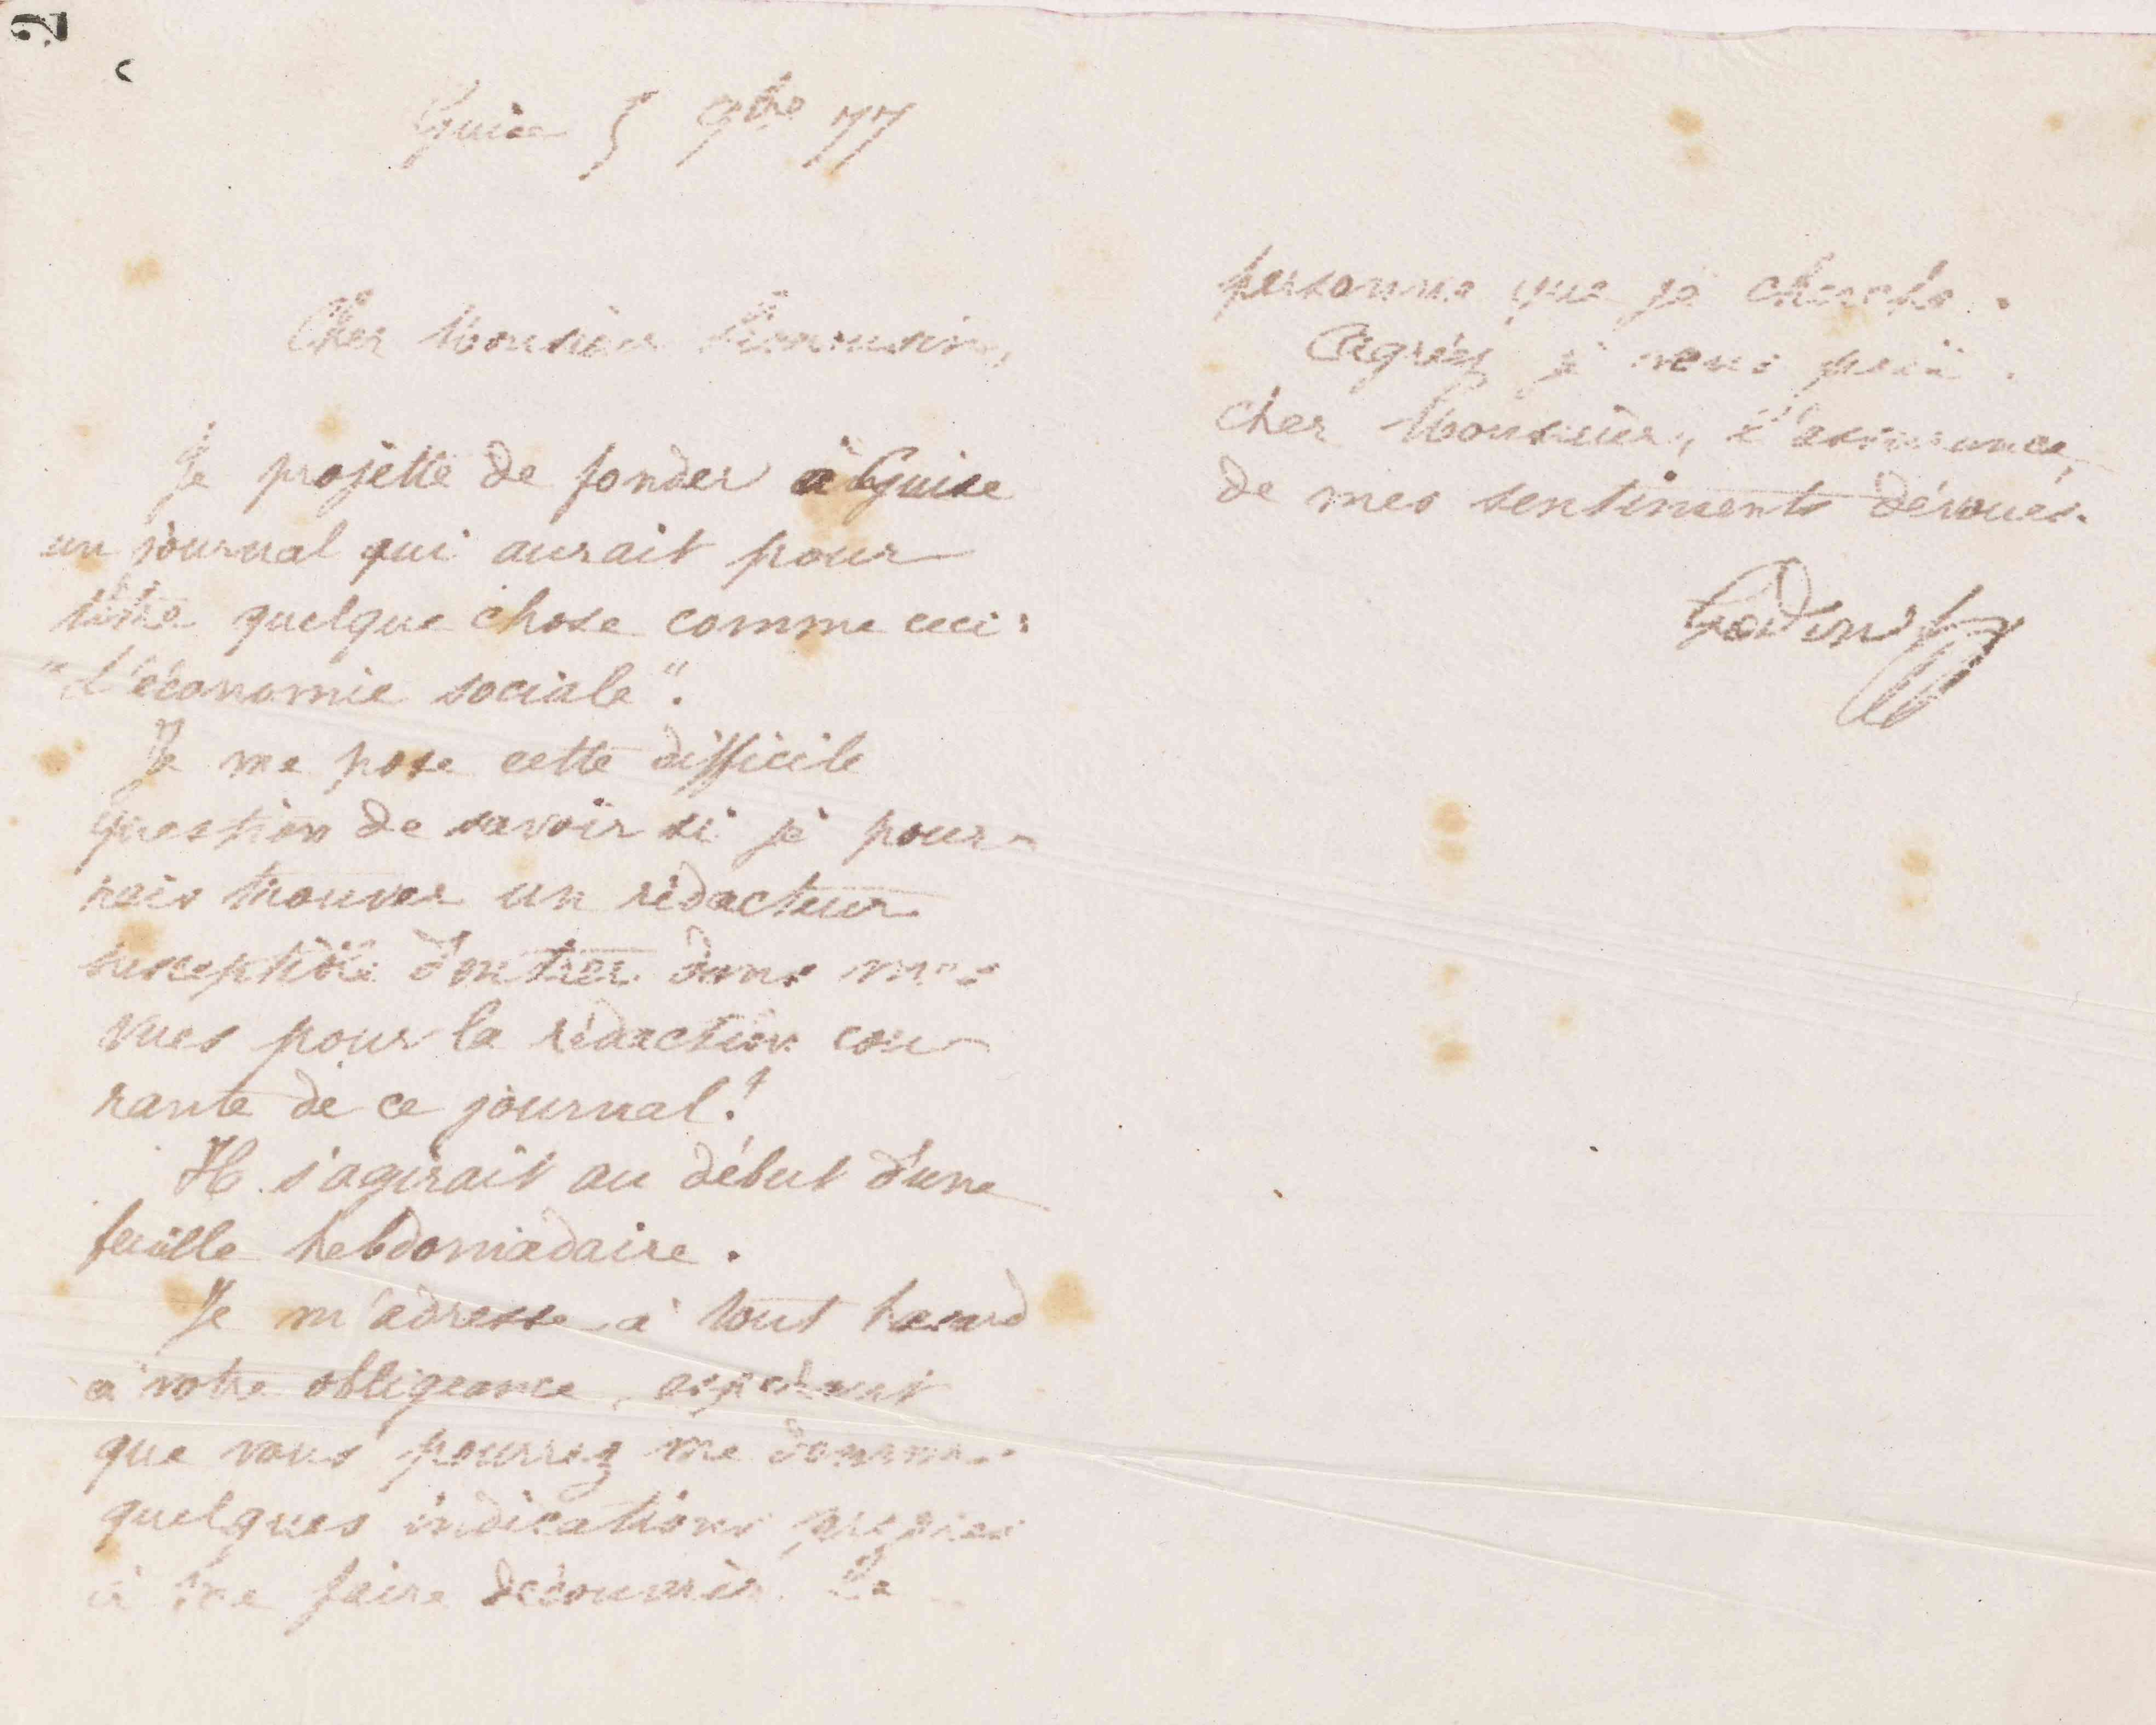 2
Guise 5 9bre 77
Cher Monsieur Limousin,
Je projette de fonder à Guise
un journal qui aurait pour
titre quelque chose comme ceci :
"L'économie sociale".
Je me pose cette difficile
question de savoir si je pour-
rais trouver un rédacteur
susceptible d'entrer dans mes
vues pour la rédaction cou-
rante de ce journal ?
Il s'agirait au début d'une
feuille hebdomadaire.
Je m'adresse à tout hasard
à votre obligeance, espérant
que vous pourrez me donner
quelques indications propres
à me faire découvrir la
personne que je cherche.
Agréez je vous prie,
cher Monsieur, l'assurance
de mes sentiments dévoués.
Godin